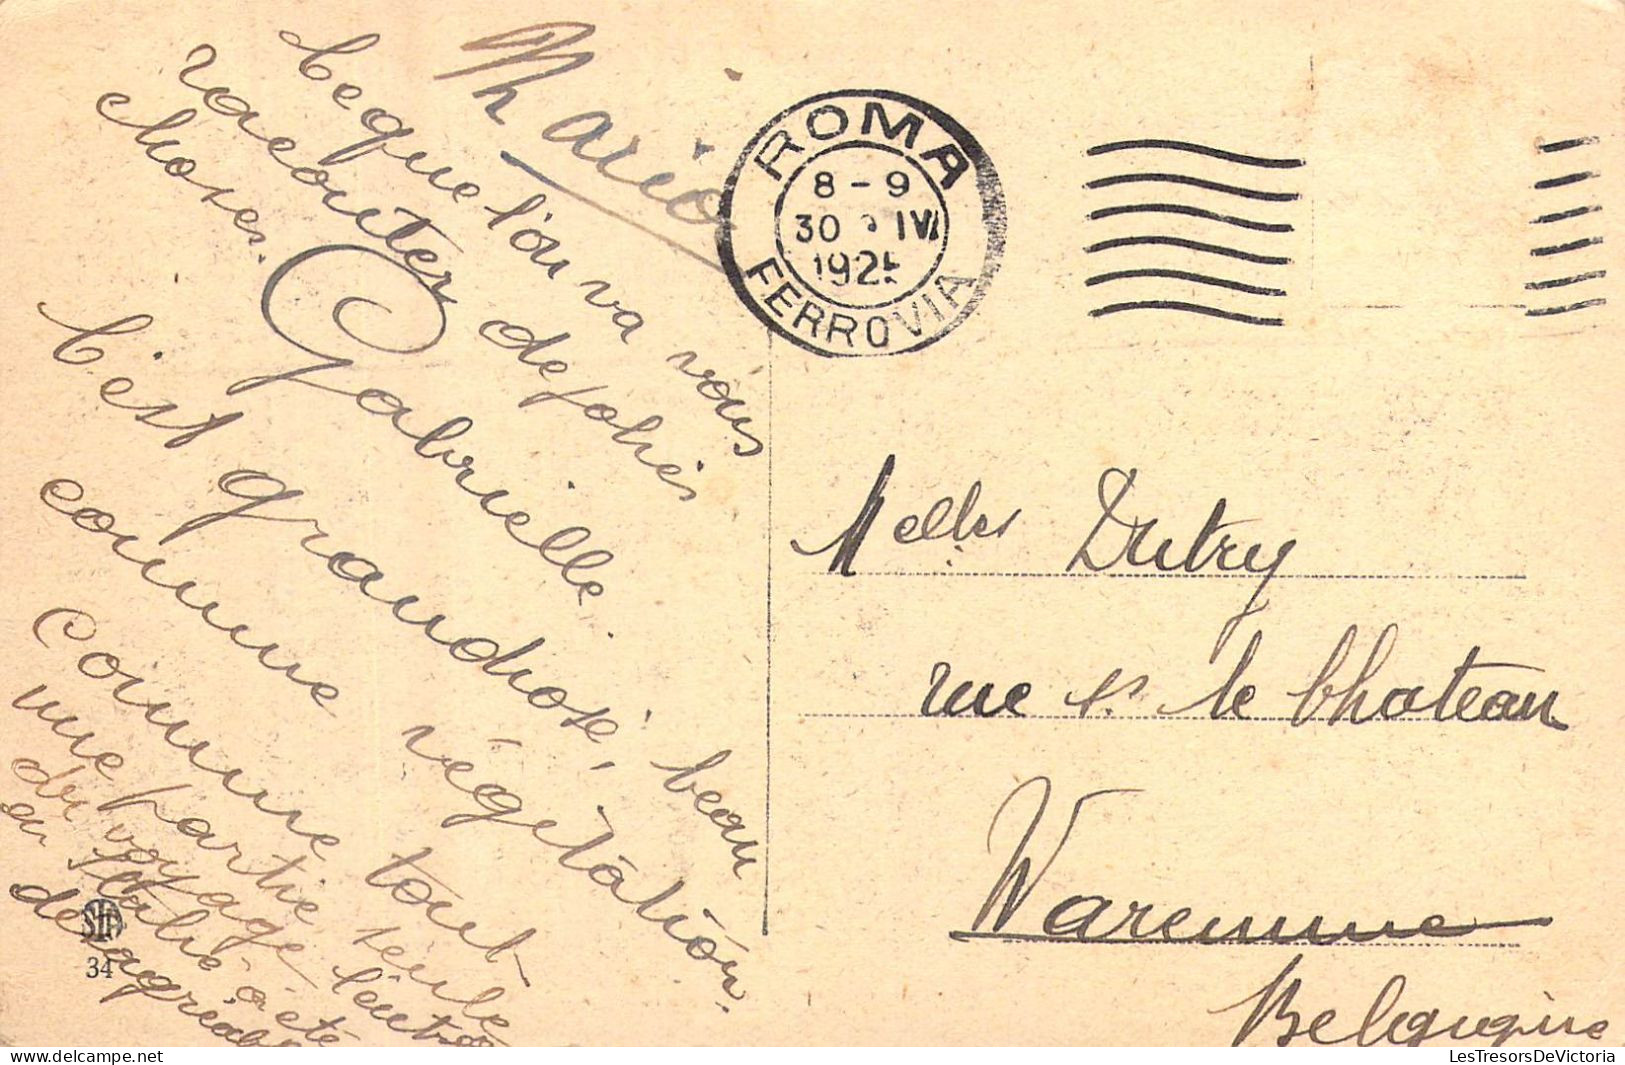 Mario
Ce que l'on va vous
raconter de jolies
choses.
Gabrielle.
C'est grandiose, beau
comme végétation.
Comme tout
une partie seule
du voyage l'entrée
en Italie a été
désagréable
STA
34
ROMA
8-9
30 IV
1925
FERROVIA
Melles Dutry
rue s. le Chateau
Waremme
Belgique
LesTresorsDeVictoria